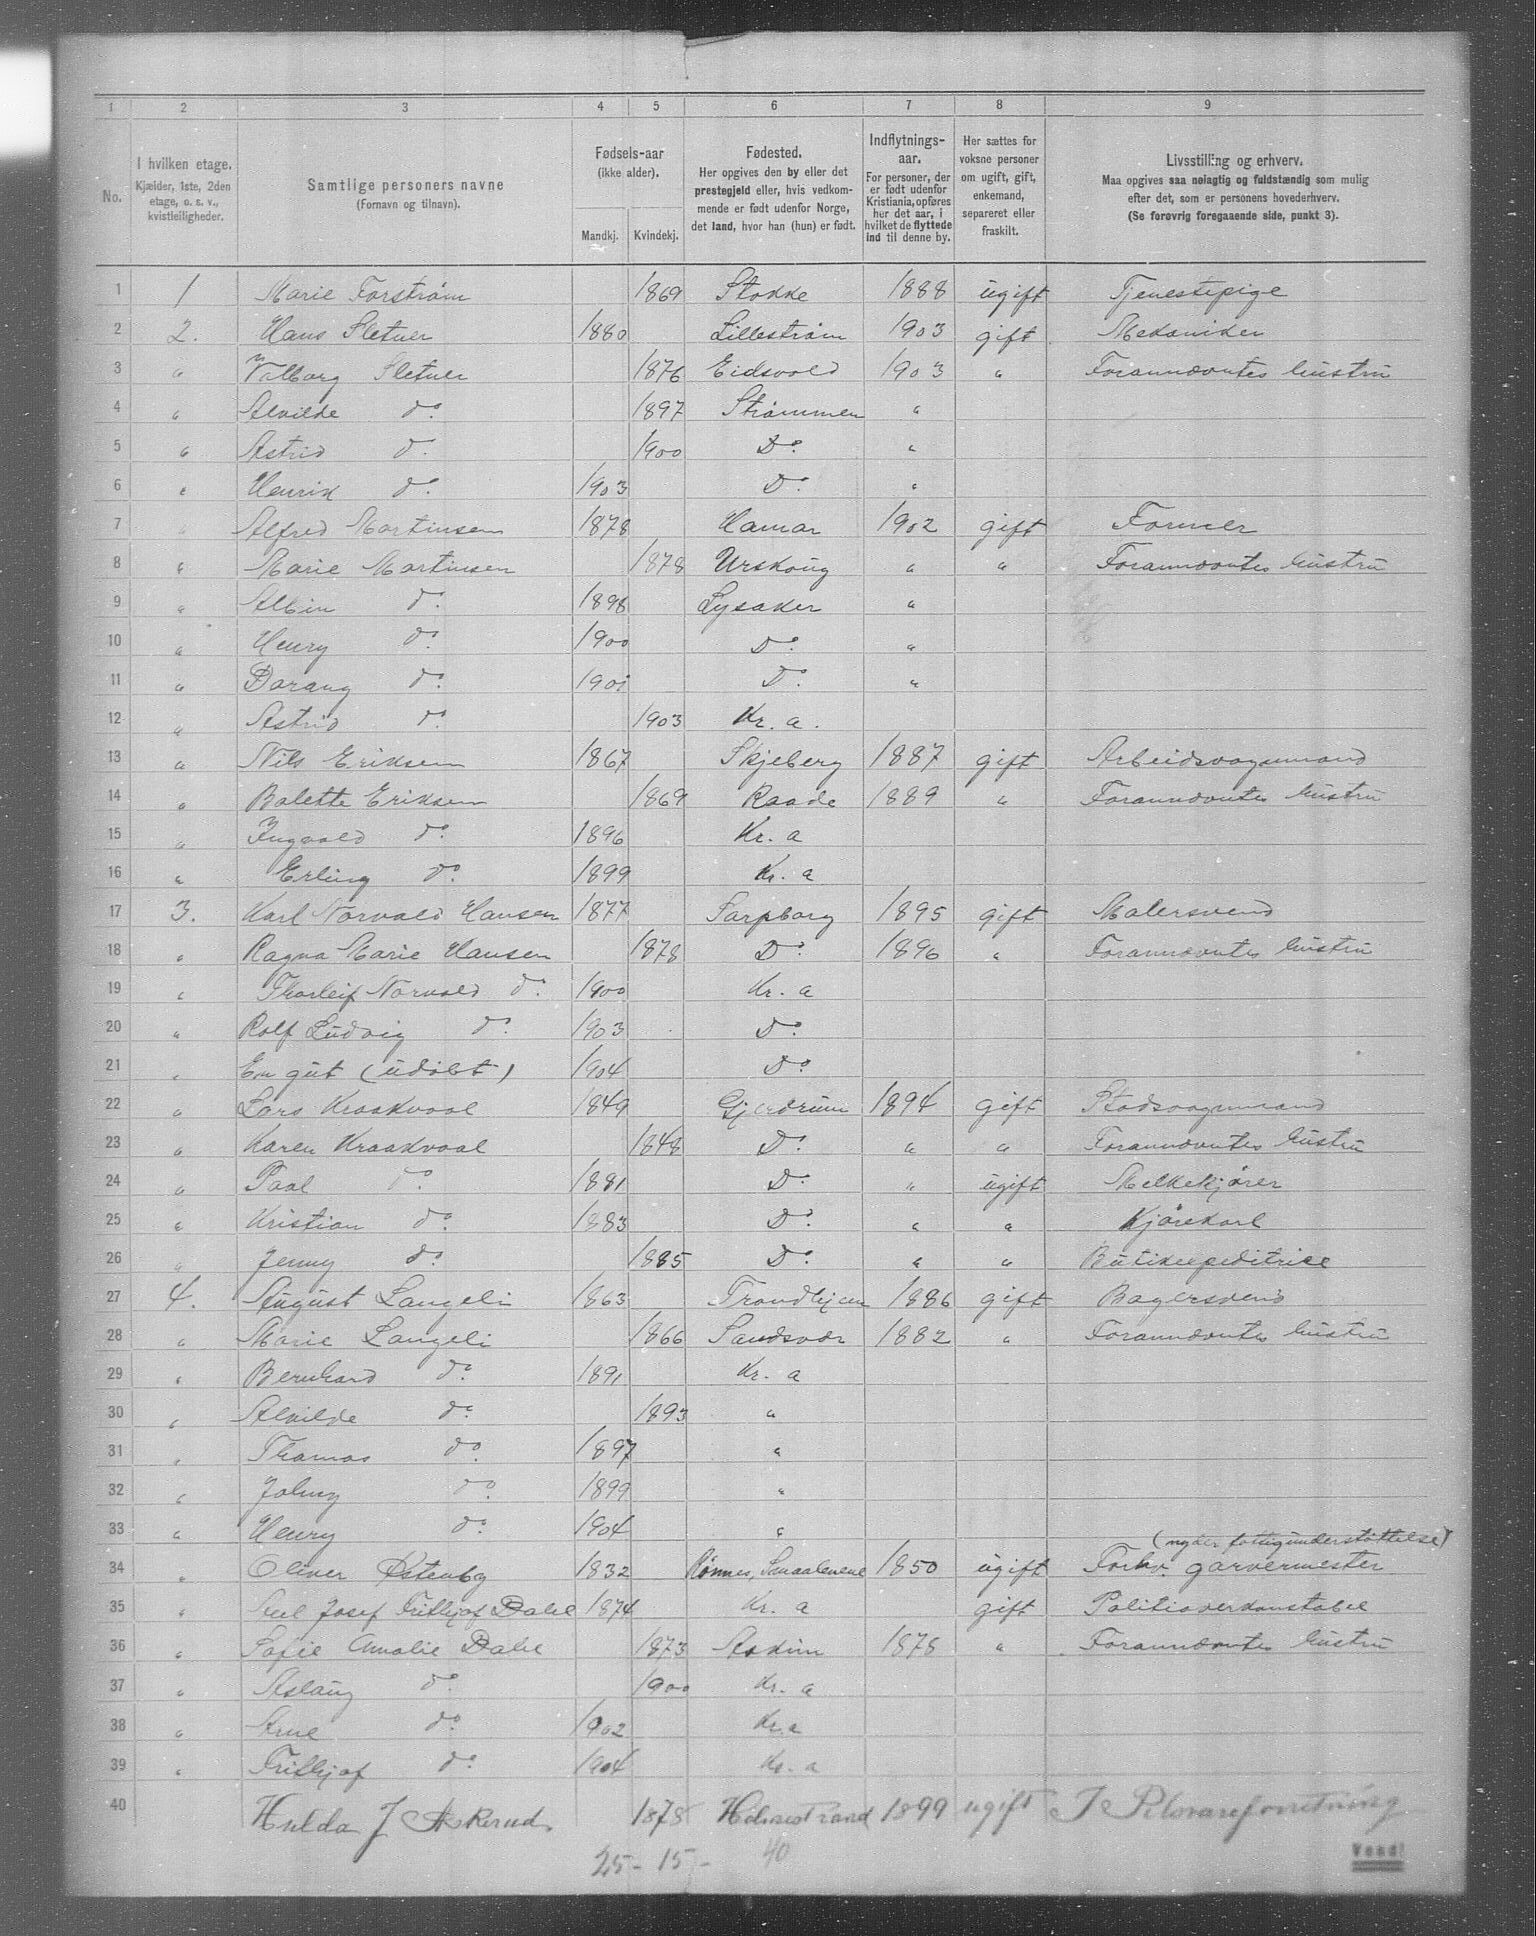 1 2 3 4 5 6 7 8 9
No.
I hvilken etage.
Kjælder, 1ste, 2den
etage, o. s. v.,
kvistleiligheder.
Samtlige personers navne
(Fornavn og tilnavn).
Fødsels-aar
(ikke alder).
Mandkj. Kvindekj.
Fødested.
Her opgives den by eller det
prestegjeld eller, hvis vedkom-
mende er født udenfor Norge,
det land, hvor han (hun) er født.
Indflytnings-
aar.
For personer, der
er født udenfor
Kristiania, opføres
her det aar, i
hvilket de flyttede
ind til denne by.
Her sættes for
voksne personer
om ugift, gift,
enkemand,
separeret eller
fraskilt.
Livsstilling og erhverv.
Maa opgives saa nøiagtig og fuldstændig som mulig
efter det, som er personens hovederhverv.
(Se forøvrig foregaaende side, punkt 3).
1 1 Marie Forstrøm 1869 Stokke 1888 ugift Tjenestepige
2 2. Hans Sletner 1880 Lillestrøm 1903 gift Mekaniker
3 " Valborg Sletner 1876 Eidsvold 1903 " Forannævntes hustru
4 " Alvilde do. 1897 Strømmen "
5 " Astrid do. 1900 Do. "
6 " Henrik do. 1903 Do. "
7 " Alfred Martinsen 1878 Hamar 1902 gift Former
8 " Marie Martinsen 1878 Urskoug " " Forannævntes hustru
9 " Albin do. 1898 Lysaker "
10 " Henry do. 1900 Do. "
11 " do. 1901 Do. "
12 " Astrid do. 1903 Kr. a.
13 " Nils Eriksen 1867 Skjeberg 1887 gift Arbeidsvognmand
14 " Balette Eriksen 1869 Raade 1889 " Forannævntes hustru
15 " Ingvald do. 1896 Kr. a
16 " Erling do. 1899 Kr. a
17 3. Karl Norvald Hansen 1877 Sarpborg 1895 gift Malersvend
18 " Ragna Marie Hansen 1878 Do. 1896 " Forannævntes hustru
19 " Thorleif Norvald do. 1900 Kr. a
20 " Rolf Ludvig do. 1903 Do.
21 " En gut (udøbt) 1904 Do.
22 " Lars Kraakvaal 1849 Gjerdrum 1894 gift Stadsvognmand
23 " Karen Kraakvaal 1848 Do. " " Forannævntes hustru
24 " Paal do. 1881 Do. " ugift Melkekjører
25 " Kristian do. 1883 Do. " " Kjørekarl
26 " Jenny do. 1885 Do. " " Butikexpeditrice
27 4. August Langeli 1863 Trondhjem 1886 gift Bagersvend
28 " Marie Langeli 1866 Sandsvær 1882 " Forannævntes hustru
29 " Bernhard do. 1891 Kr. a
30 " Alvilde do. 1893 "
31 " Thomas do. 1897 "
32 " Johny do. 1899 "
33 " Henry do. 1904 "
(nyder fattigunderstøttelse)
34 " Oliver Østenby 1832 Rønnes, Smaalenene 1850 ugift Forhv. garvermester
35 " Josef Frithjof Dahl 1874 Kr. a gift Politioverkonstabel
36 " Sofie Amalie Dahl 1873 Askim 1878 " Forannævntes hustru
37 " Aslaug do. 1900 Kr. a
38 " Arne do. 1902 Kr. a
39 " Frithjof do. 1904 Kr. a
40 Hulda J Askerud. 1878 Holmestrand 1899 ugift I
25 - 15 - 40
Vend!